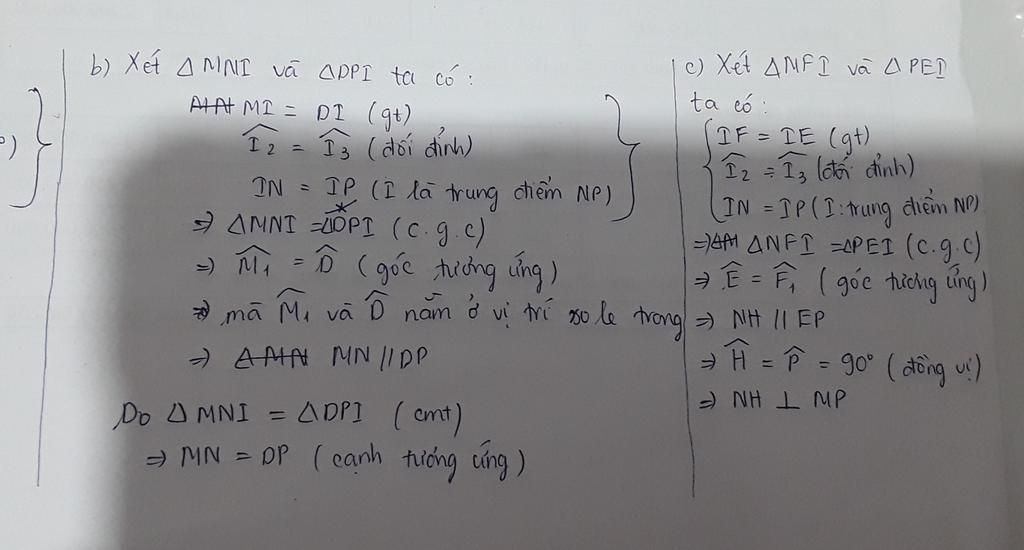 b) Xét ΔMNI và ΔDPI ta có:
MI = DI (gt)
Î₂ = Î₃ (đối đỉnh)
IN = IP (I là trung điểm NP)
⇒ ΔMNI = ΔDPI (c.g.c)
⇒ M̂₁ = D̂ (góc tương ứng)
mà M̂₁ và D̂ nằm ở vị trí so le trong
⇒ MN // DP
Do ΔMNI = ΔDPI (cmt)
⇒ MN = DP (cạnh tương ứng)
c) Xét ΔNFI và ΔPEI
ta có:
IF = IE (gt)
Î₂ = Î₃ (đối đỉnh)
IN = IP (I: trung điểm NP)
⇒ ΔNFI = ΔPEI (c.g.c)
⇒ Ê = F̂₁ (góc tương ứng)
⇒ NH // EP
⇒ Ĥ = P̂ = 90° (đồng vị)
⇒ NH ⊥ MP